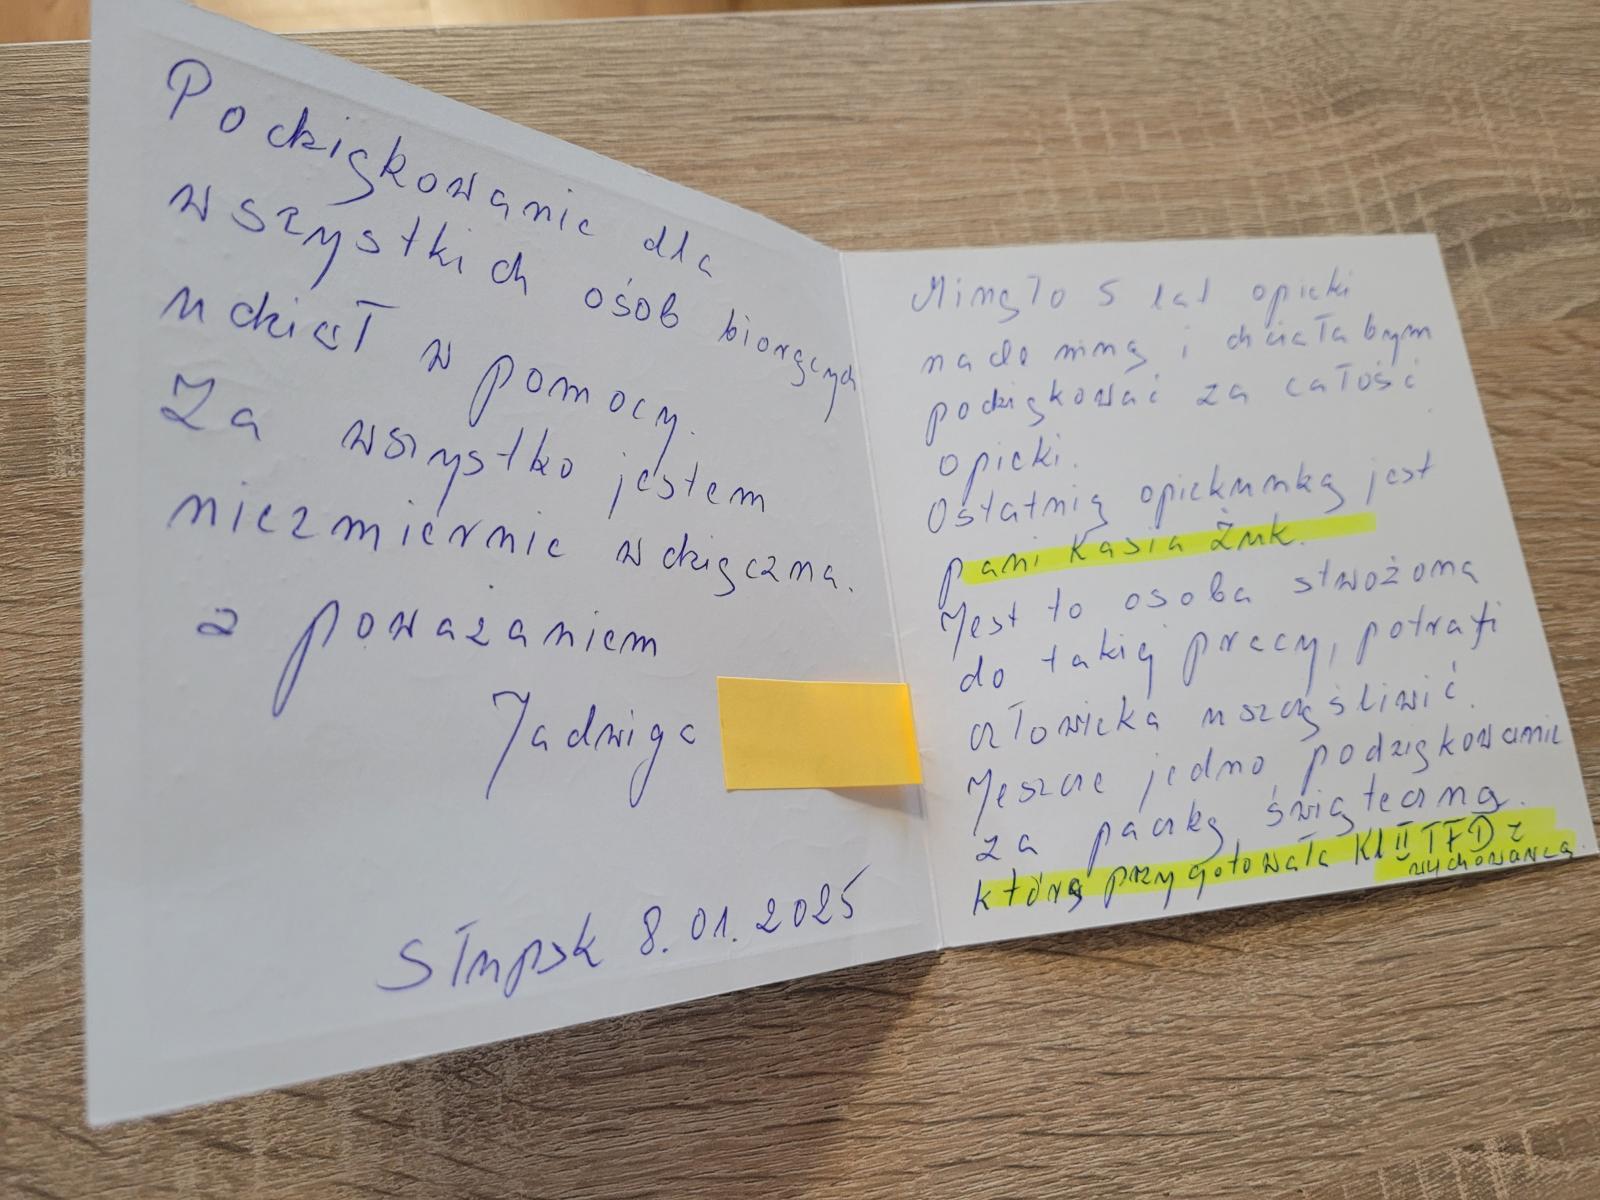 Podziękowanie dla
wszystkich osób biorących
udział w pomocy.
Za wszystko jestem
niezmiernie wdzięczna.
z poważaniem
Jadwiga
Słupsk 8.01.2025
Minęło 5 lat opieki
nade mną i chciałabym
podziękować za całość
opieki.
Ostatnią opiekunką jest
pani Kasia Żuk.
Jest to osoba stwożona
do takiej pracy, potrafi
człowieka uszczęśliwić.
Jeszcze jedno podziękowanie
za paczkę świąteczną.
którą przygotowała Kl II TFD z
wychowawcą.